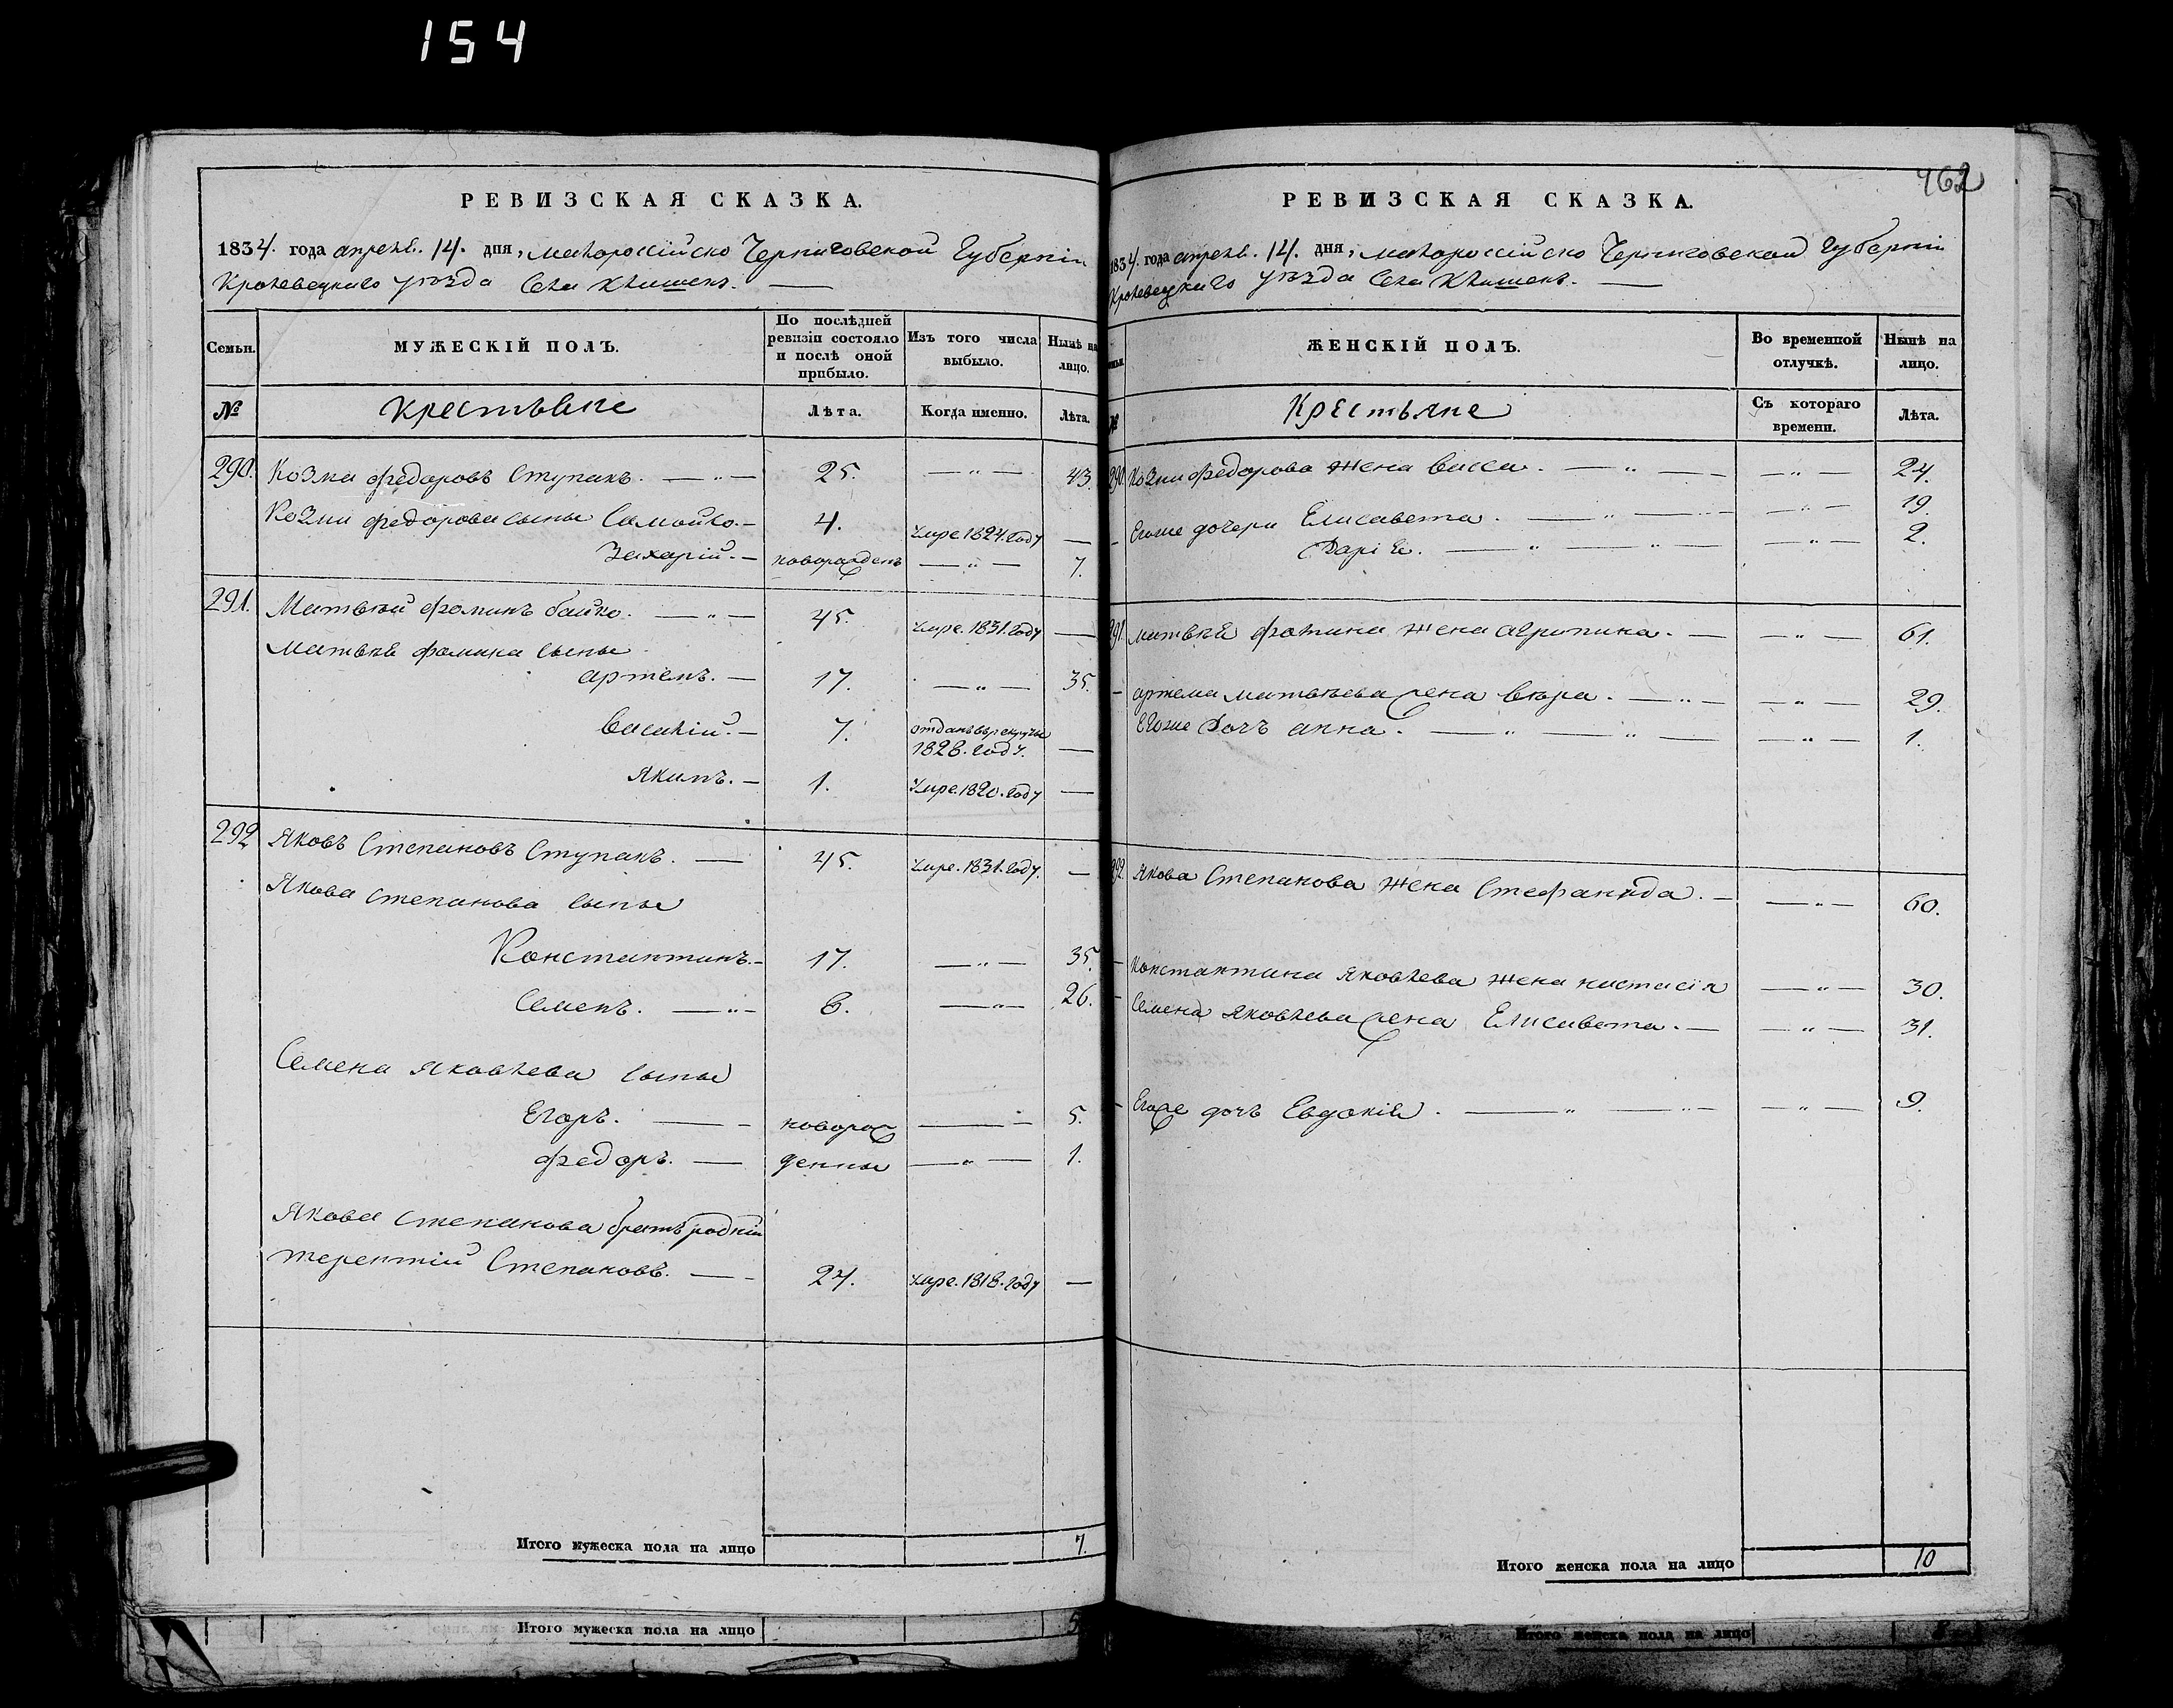 154
РЕВИЗСКАЯ СКАЗКА.
1834. года апреля. 14. дня, малоросійско Черниговской Губерніи
Кролевецкаго уезда Села Клишекъ.
Семьи.
МУЖЕСКІЙ ПОЛЪ.
По послѣдней ревизіи состояло и послѣ оной прибыло.
Изъ того числа выбыло.
Нынѣ на лицо.
№
Крестьяне
Лѣта.
Когда именно.
Лѣта.
290. Козма федоровъ Ступакъ. 25. — " — 43.
Козми федорова сыны Самойло. 4. Умре 1824. году —
Захарій. новорожденъ — " — 7.
291. Матвѣй фоминъ бойко. 45. умре. 1831. году —
Матвѣя фомина сыны
артемъ. 17. — " — 35.
Василій. 7. отданъ въ рекруты
1828. году. —
Якимъ. 1. Умре. 1820. году —
292 Яковъ Степановъ Ступакъ. 45. умре. 1831. году. —
Якова степанова сыны
Константинъ. 17. — " — 35.
Семенъ. 8. — " — 26.
Семена Яковлева сыны
Егоръ. новорож — " — 5.
федоръ. денны — " — 1.
Якова степанова братъ родній
терентій Степановъ. 24. умре. 1818. году —
Итого мужеска пола на лицо 7.
Итого мужеска пола на лицо 5
462
РЕВИЗСКАЯ СКАЗКА.
1834. года апреля. 14. дня, малоросійско Черниговской Губерніи
Кролевецкаго уезда Села Клишекъ.
ЖЕНСКІЙ ПОЛЪ.
Во временной отлучкѣ.
Нынѣ на лицо.
№
Крестьяне
Съ котораго времени.
Лѣта.
290. Козми федорова жена васса. — " — 24.
Егоже дочери Елисавета. — " — 19.
Дарія. — " — 2.
291. матвѣя фомина жена агрипина. — " — 61.
артема матвѣева жена вѣра. — " — 29.
Егоже Дочъ анна. — " — 1.
292. Якова Степанова жена Стефанида. — " — 60.
Константина Яковлева жена настасія — " — 30.
Семена Яковлева жена Елисавета. — " — 31.
Егоже дочъ Евдокія. — " — 9.
Итого женска пола на лицо 10
Итого женска пола на лицо 8